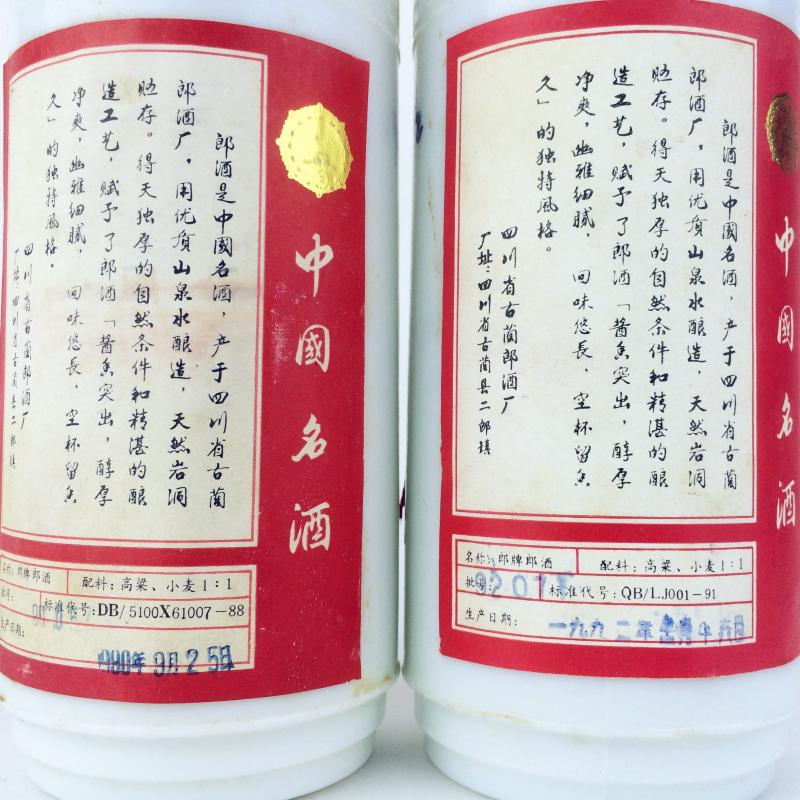 中國名酒
郎酒是中國名酒，产于四川省古蔺
郎酒厂。用优质山泉水酿造，天然岩洞
贮存。得天独厚的自然条件和精湛的酿
造工艺，赋予了郎酒「酱香突出，醇厚
净爽，幽雅细腻，回味悠長，空杯留香
久」的独特風格。
四川省古蔺郎酒厂
厂址：四川省古蔺县二郎镇
名称：郎牌郎酒 配料：高粱、小麦1：1
批号： 标准代号：DB/5100X61007-88
生产日期： 1990年9月25日
中國名酒
郎酒是中國名酒，产于四川省古蔺
郎酒厂。用优质山泉水酿造，天然岩洞
贮存。得天独厚的自然条件和精湛的酿
造工艺，赋予了郎酒「酱香突出，醇厚
净爽，幽雅细腻，回味悠長，空杯留香
久」的独特風格。
四川省古蔺郎酒厂
厂址：四川省古蔺县二郎镇
名称：郎牌郎酒 配料：高粱、小麦1：1
批号： 标准代号：QB/LJ001-91
生产日期： 一九九二年